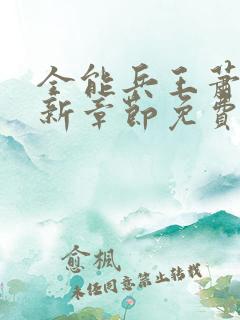 全能兵王萧
新章节免费
愈枫
未经同意禁止转载